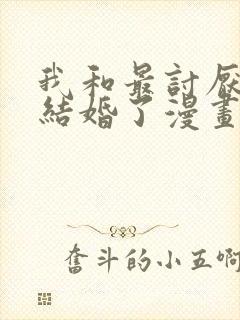 我和最討厭
結婚了漫畫
奮斗的小五啊